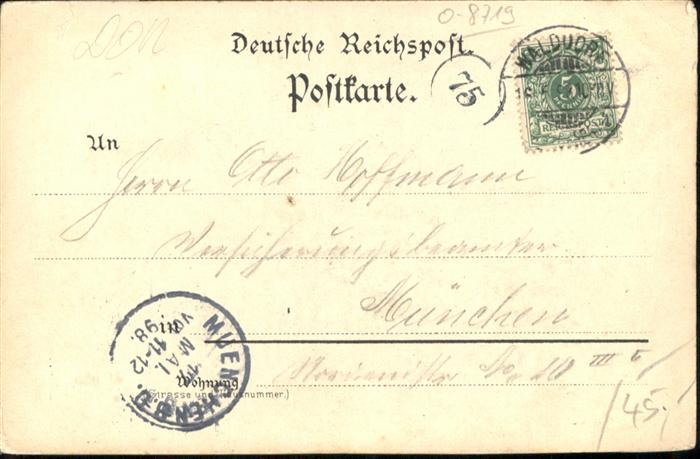 DON
O-8719
Deutsche Reichspost.
Postkarte.
75
5
PFENNIG
REICHSPOST
An
Herrn Otto Hoffmann
Versicherungsbeamter
in
München
MUENCHEN B.P.
MAI
11-12
VOR
98.
Wohnung
(Strasse und Hausnummer.)
No 20 III
45,